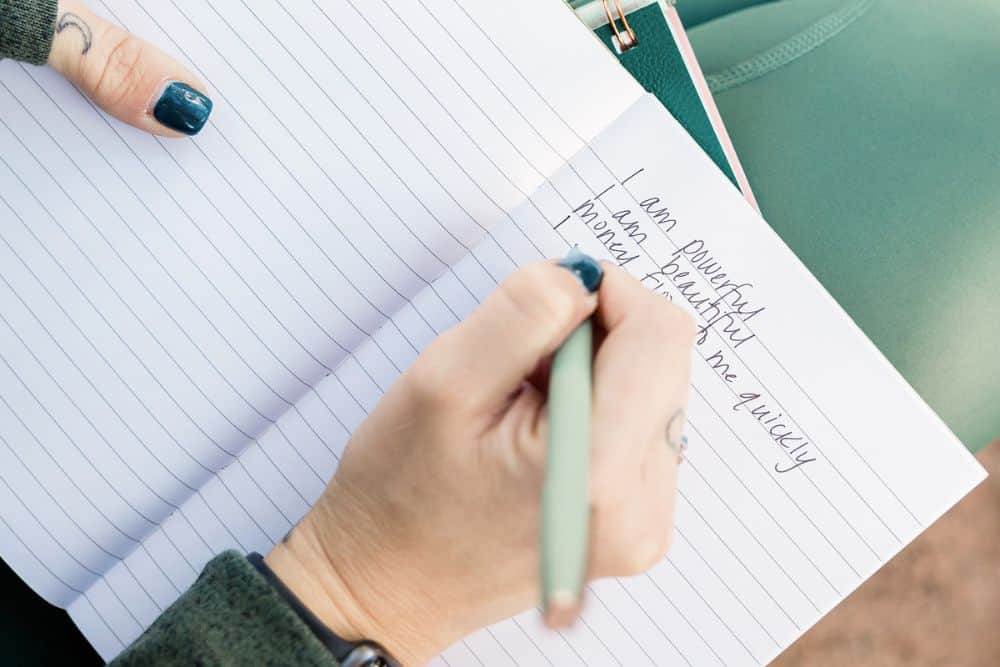 I am powerful
I am beautiful
money flows to me quickly
I